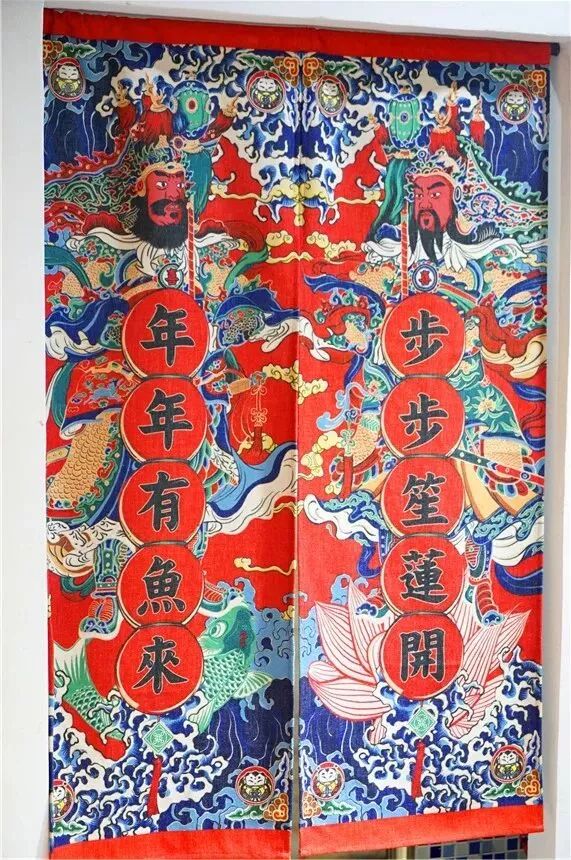 步步笙蓮開
年年有魚來